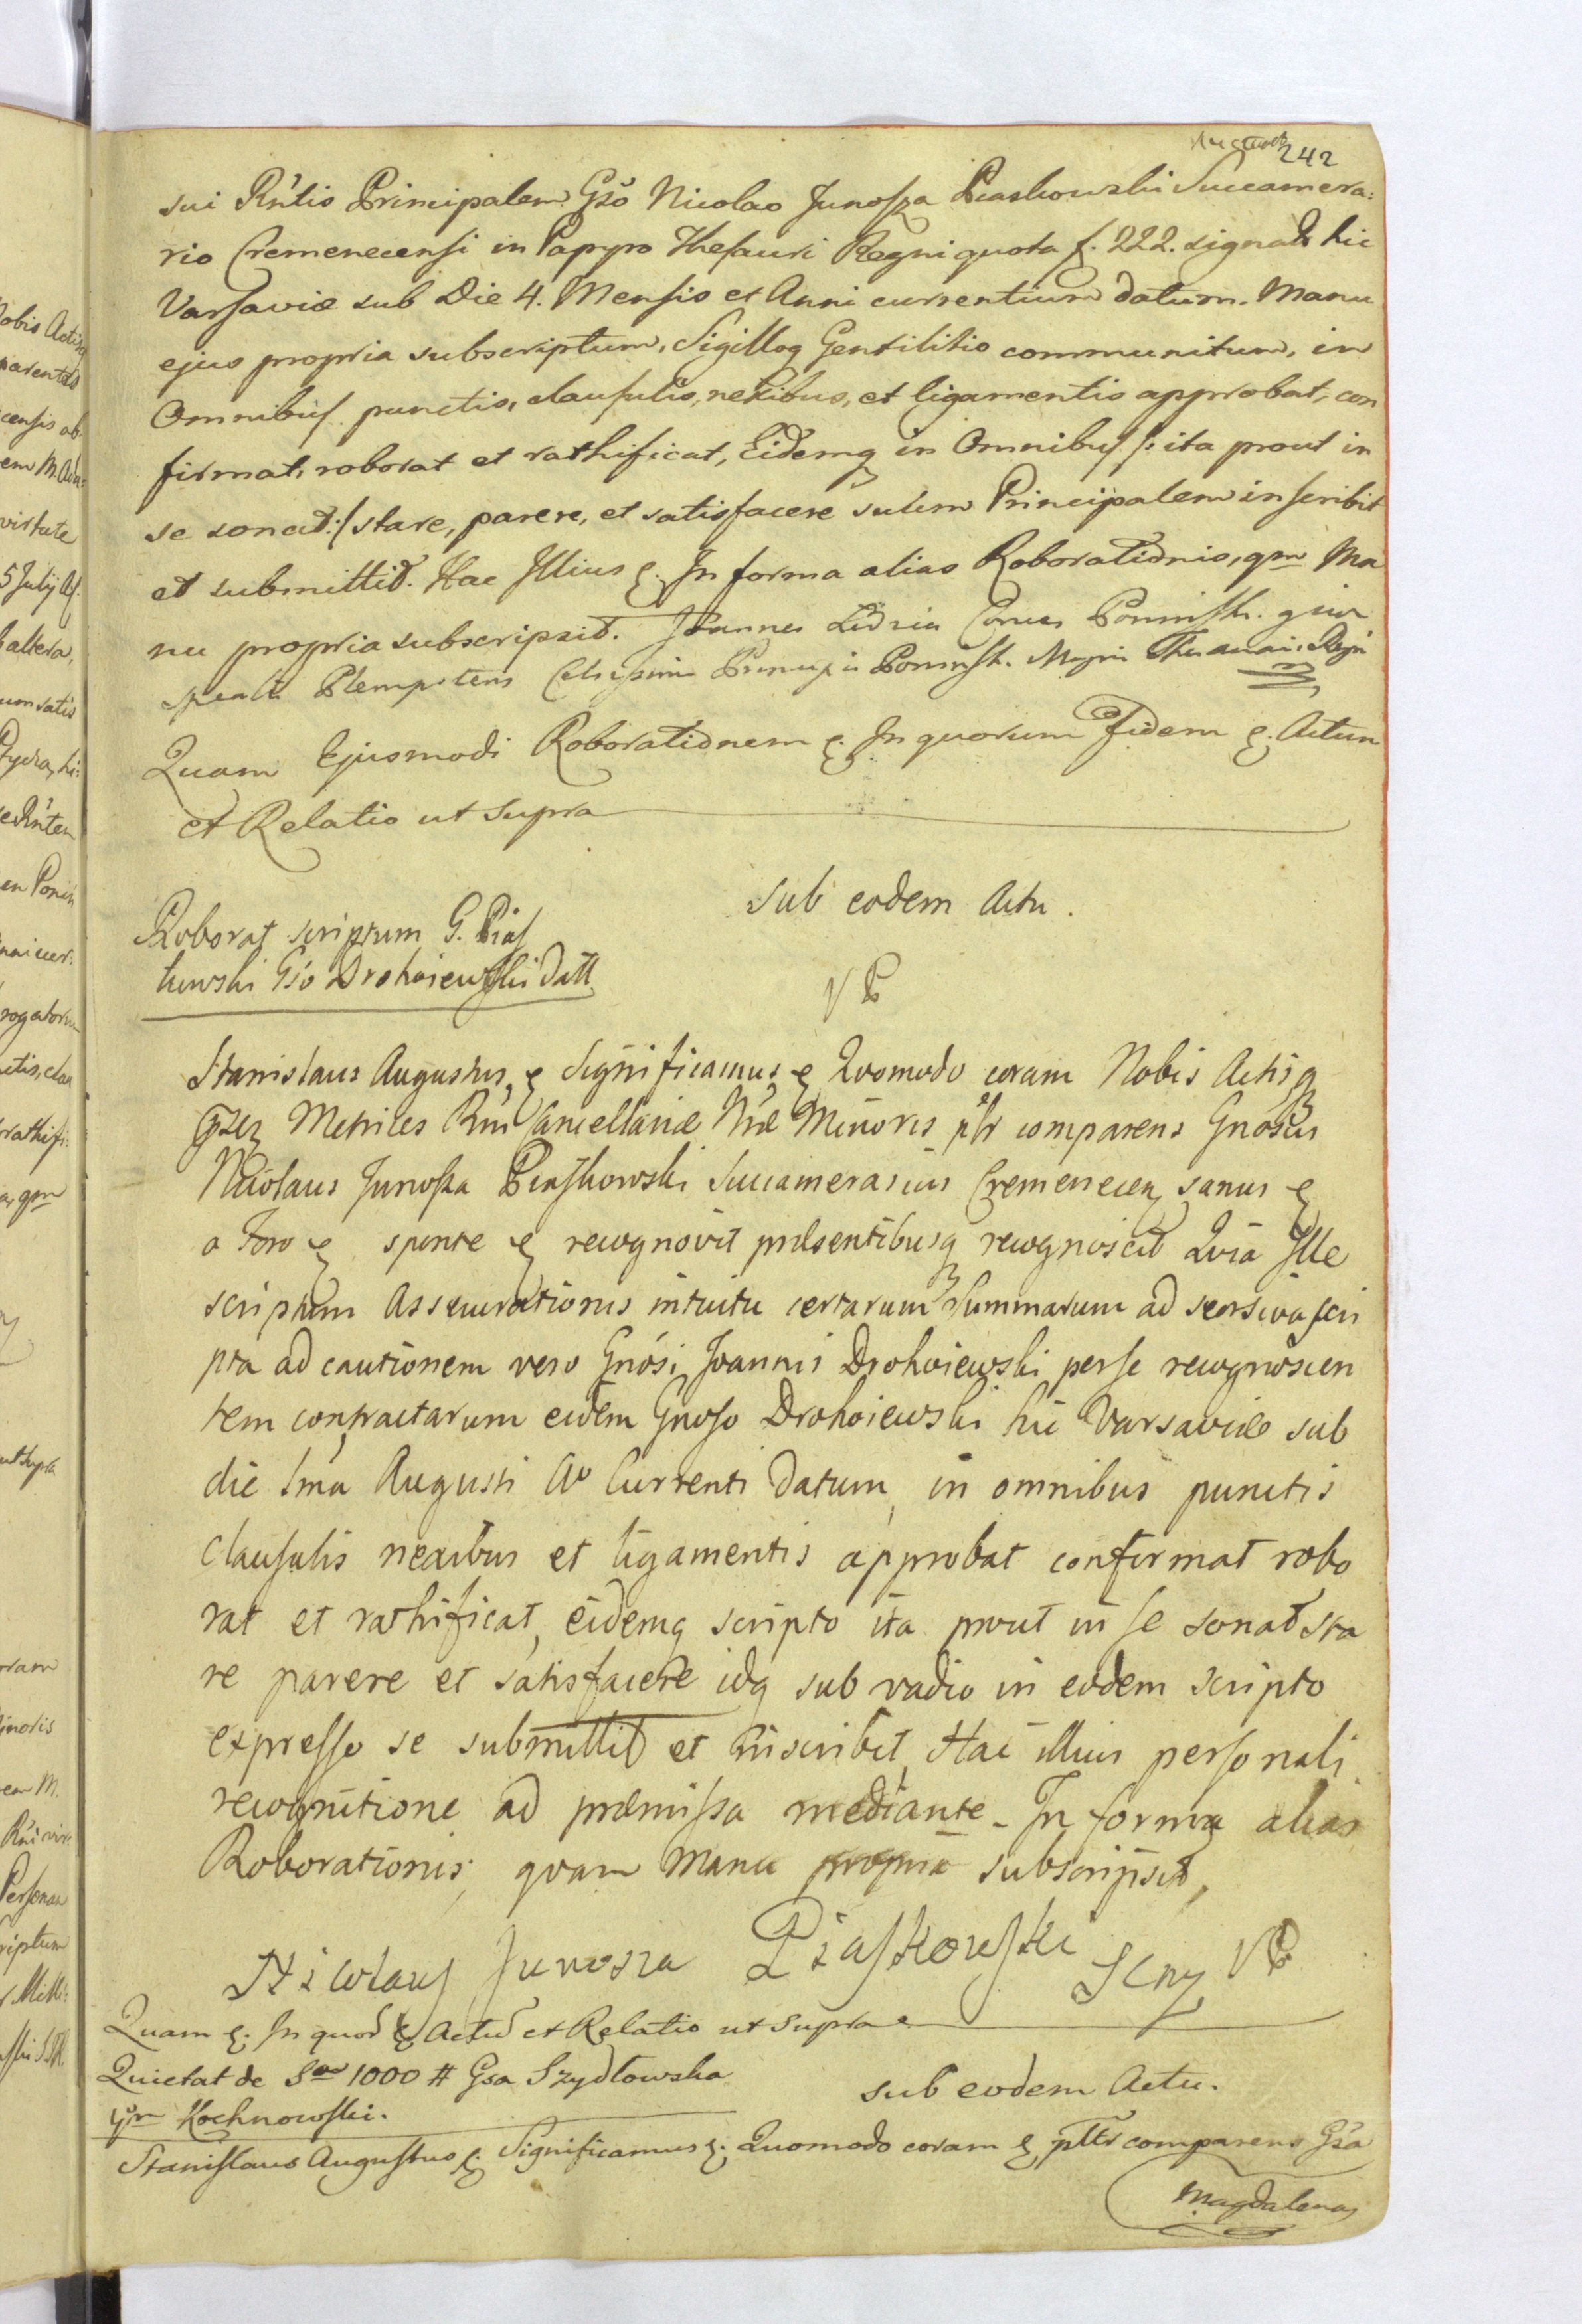 242
sui Rńtis Principalem Gsŏ Nicolao Junosza Piaskowski Succamera:
rio Cremenecensi in Papyro Thesauri Regni quota f. 222. signato hic
Varsaviæ sub Die 4. Mensis et Anni currentium datum. Manu
ejus propria subscriptum, Sigilloq Gentilitio communitum, in
Omnibus punctis, clausulis, nexibus, et ligamentis approbat, con
firmat, roborat et rathificat, Eidemq in Omnibus /: ita prout in
se sonat :/ stare, parere, et satisfacere suum Principalem inscribit
et submittit. Hac Illius &. In forma alias Roborationis, qm Ma
nu propria subscripsit. Joannes Comes Poninsk.
Plenipotens Celsissimi Principis Poninsk. Magni Thesaurar. Regni
Quam Ejusmodi Roborationem &. In quorum Fidem &. Actum
et Relatio ut supra
sub eodem Actu.
Roborat scriptum G. Pias
kowski Gśo Drohoiewski datt.
VP
Stanislaus Augustus & Significamus & Quomodo coram Nobis Actisq
Metrices Rńi Cancellariæ Nræ Minoris pltr comparens Gnosus
Nicolaus Junosza Piaskowski Succamerarius Cremenecen sanus &
a Foro & sponte & recognovit præsentibusq recognoscit Quia Ille
scriptum Assecurationis intuitu certarum Summarum ad seorsiva scri
pta ad cautionem vero Gnosi Joannis Drohoiewski perse recognoscen
tem contractarum eidem Gnoso Drohoiewski hic Varsaviæ sub
die 1ma Augusti Ao Currenti datum, in omnibus punctis
clausulis nexibus et ligamentis approbat confirmat robo
rat et rathificat, eidemq scripto ita prout in se sonat sta
re parere et satisfacere idq sub vadio in eodem scripto
expresso se submittit et inscribit, Hac illius personali
recognitione ad præmissa mediante. In forma alias
Roborationis, quam Manu propria subscripsit,
Nicolaus Junosza Piaskowski VP
Quam &. In quor & Actu et Relatio ut supra
Quietat de Sa 1000 # Gsa Szydlowska
Gm Kochnowski.
sub eodem Actu.
Stanislaus Augustus &. Significamus &. Quomodo coram & pltr comparens Gsa
Magdalena